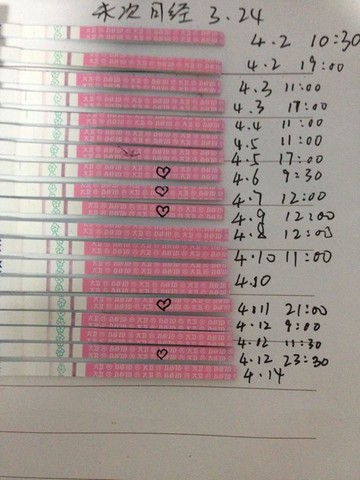 末次月经 3.24
4.2 10:30
4.2 19:00
4.3 11:00
4.3 17:00
4.4 11:00
4.5 11:00
4.5 17:00
4.6 9:30
4.7 12:00
4.9 12:00
4.8 12:00
4.10 11:00
4.10
4.11 21:00
4.12 9:00
4.12 11:30
4.12 23:30
4.14